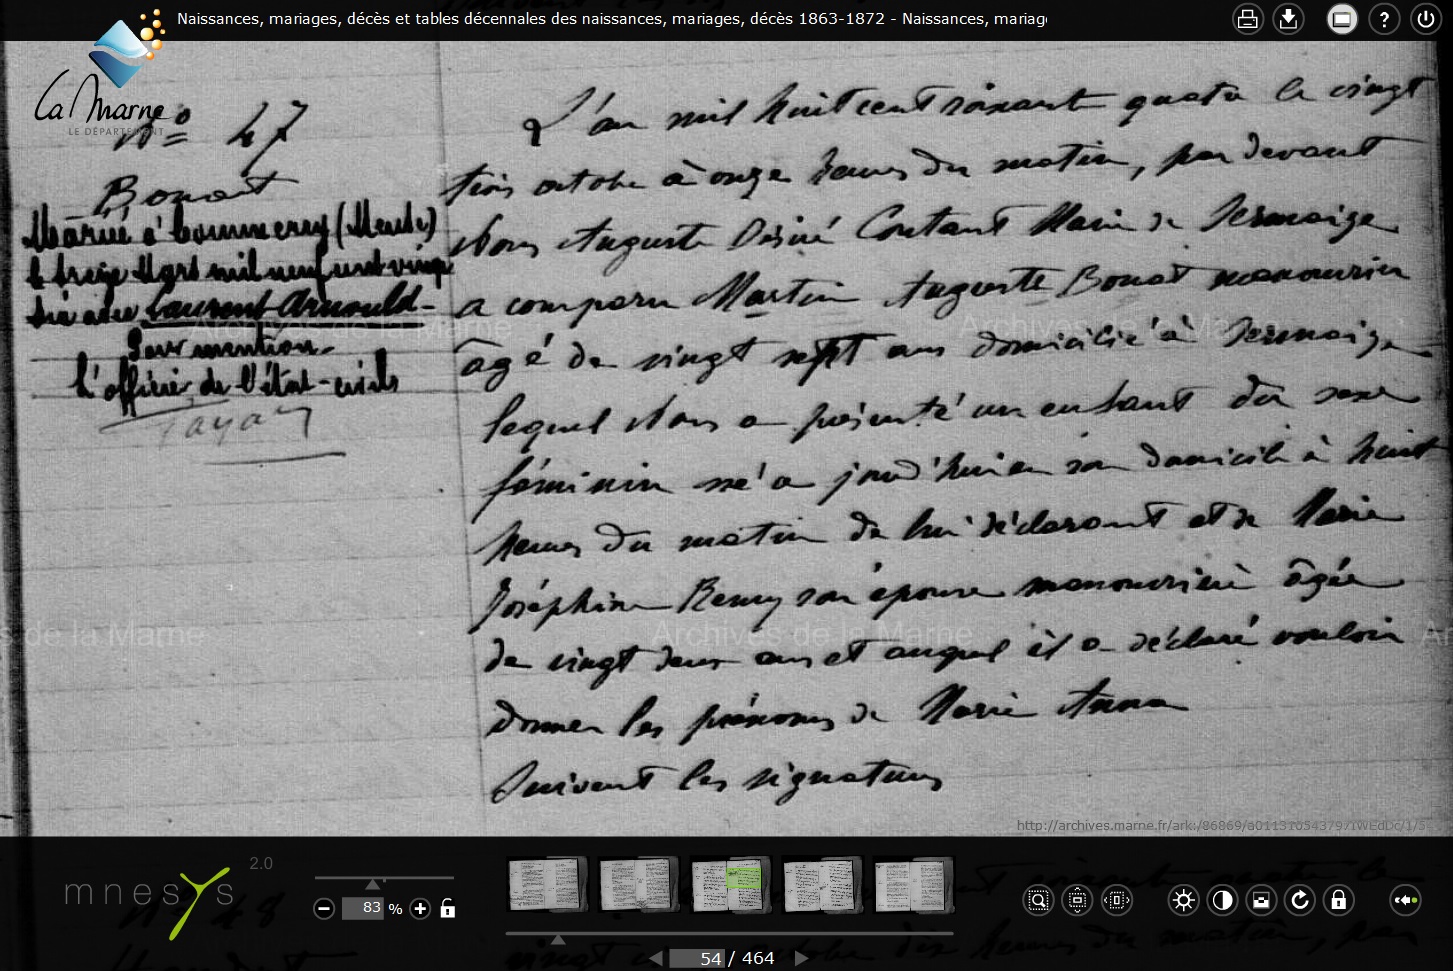 Naissances, mariages, décès et tables décennales des naissances, mariages, décès 1863-1872 - Naissances, mariag
La Marne
LE DÉPARTEMENT
N° 47
Bonat
Mariée à Commercy (Meuse)
le treize Mars mil neuf cent vingt
six avec Laurent Arnould-
Pour mention
L'officier de l'état-civil
L'an mil huit cent soixante quatre le vingt
trois octobre à onze heures du matin, par devant
Nous Auguste Désiré Coutant Maire de Sermaize
a comparu Martin Auguste Bonat manouvrier
âgé de vingt sept ans domicilié à Sermaize
lequel Nous a présenté un enfant du sexe
féminin né aujourd'hui en son domicile à huit
heures du matin de lui déclarant et de Marie
Joséphine Remy son épouse manouvrière âgée
de vingt deux ans et auquel il a déclaré vouloir
donner les prénoms de Marie Anna
Suivent les signatures
Archives de la Marne
Archives de la Marne
s de la Marne
Archives de la Marne
mnesys 2.0
83 %
54 / 464